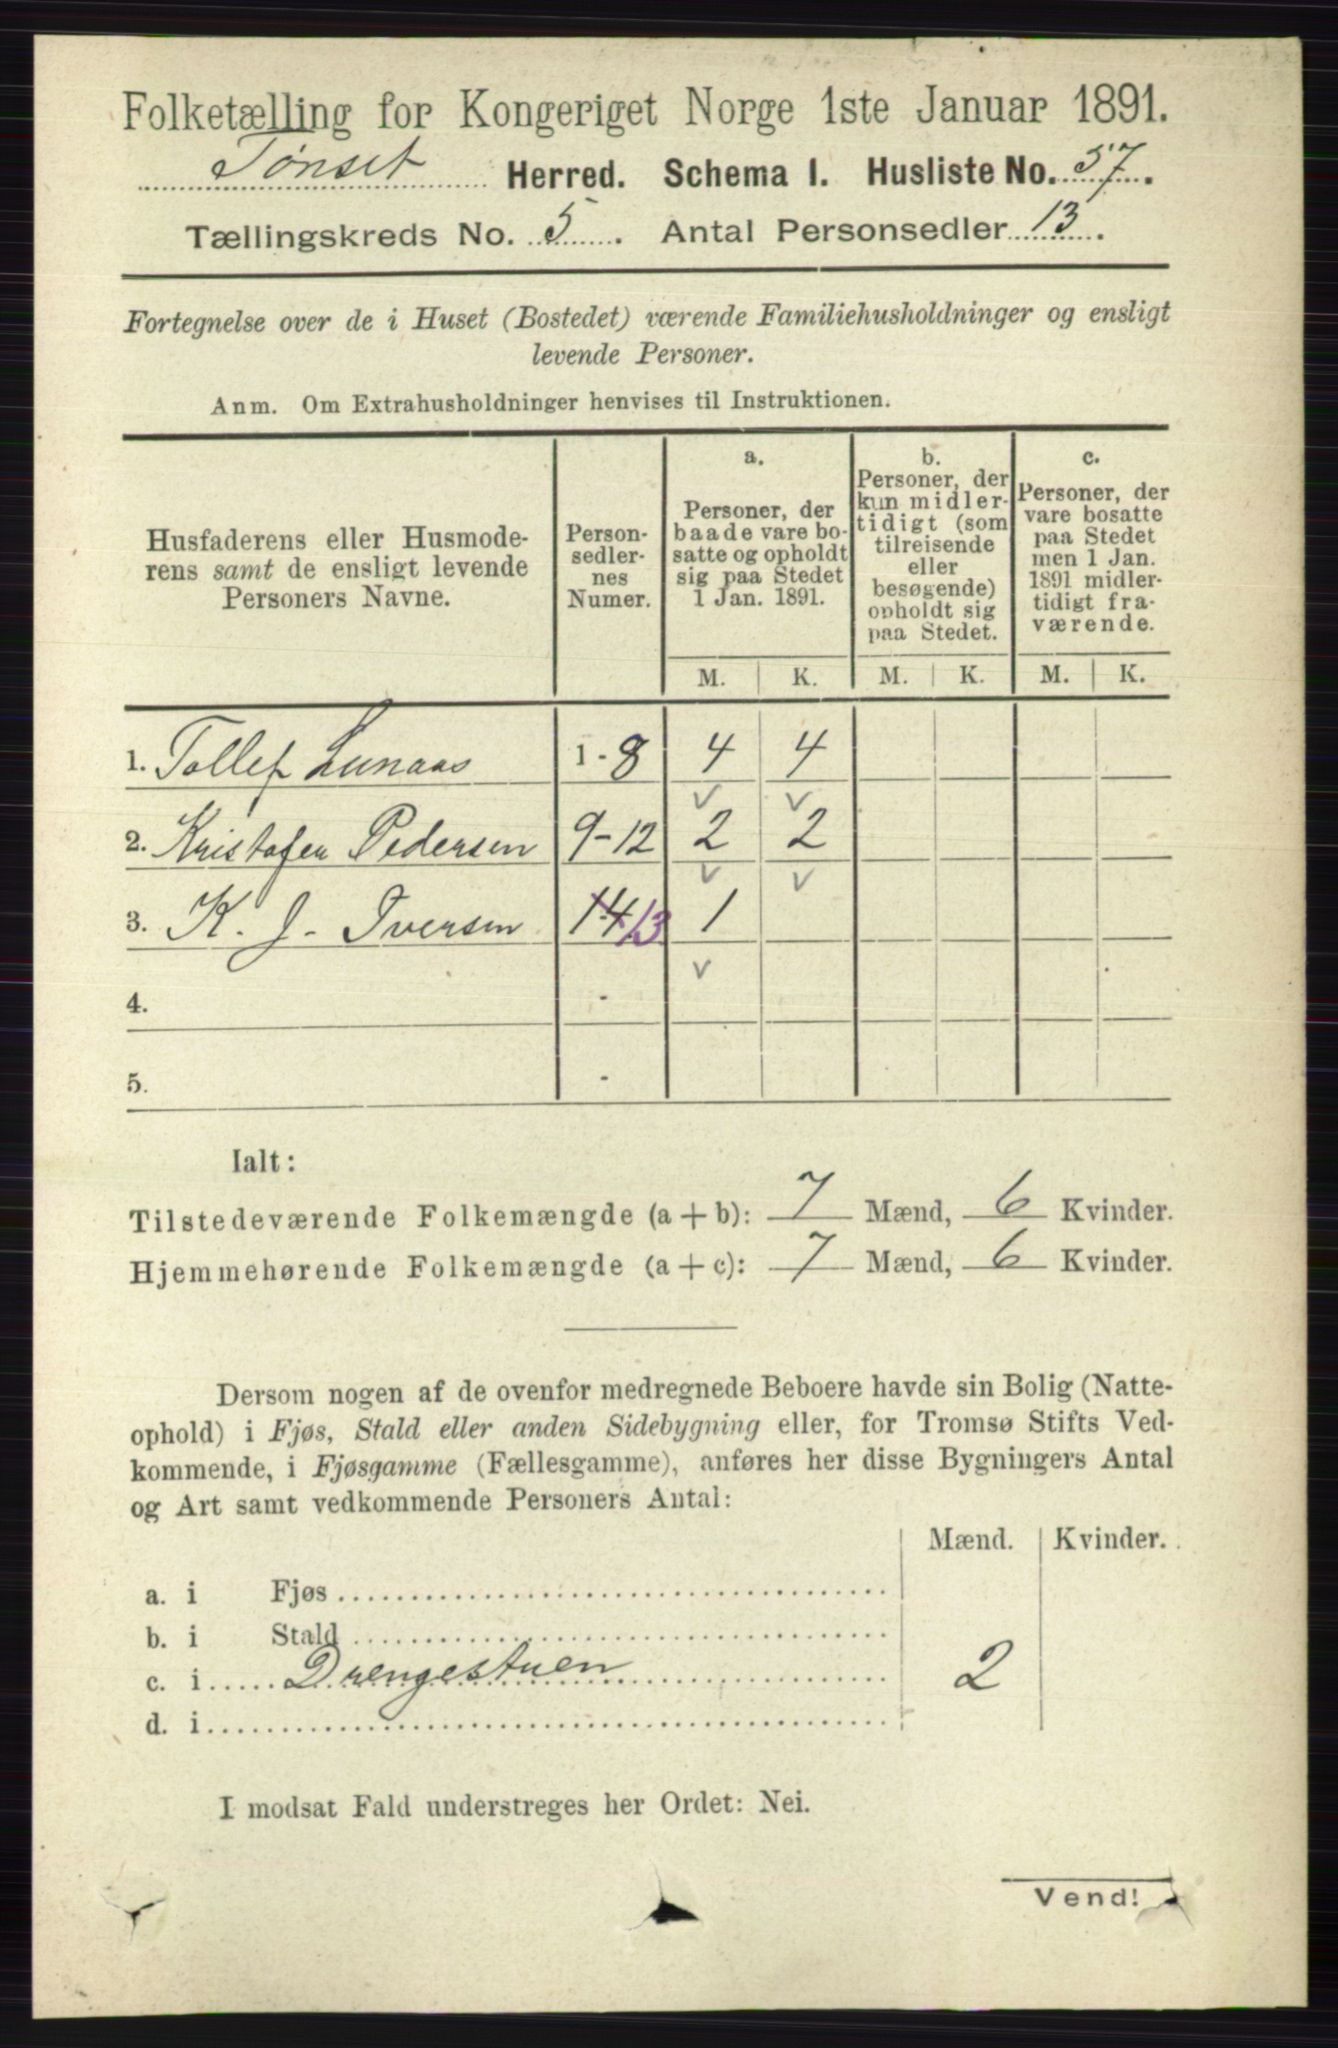 Folketælling for Kongeriget Norge 1ste Januar 1891.
Tønset Herred. Schema I. Husliste No. 57.
Tællingskreds No. 5. Antal Personsedler 13.
Fortegnelse over de i Huset (Bostedet) værende Familiehusholdninger og ensligt
levende Personer.
Anm. Om Extrahusholdninger henvises til Instruktionen.
Husfaderens eller Husmode-
rens samt de ensligt levende
Personers Navne.
Person-
sedler-
nes
Numer.
a.
Personer, der
baade vare bo-
satte og opholdt
sig paa Stedet
1 Jan. 1891.
b.
Personer, der
kun midler-
tidigt (som
tilreisende
eller
besøgende)
opholdt sig
paa Stedet.
c.
Personer, der
vare bosatte
paa Stedet
men 1 Jan.
1891 midler-
tidigt fra-
værende.
M. K. M. K. M. K.
1. Tollef Lunaas 1-8 4 4
2. Kristofer Pedersen 9-12 2 2
3. K. J. Iversen 14 13 1
4. -
5. -
Ialt:
Tilstedeværende Folkemængde (a + b): 7 Mænd, 6 Kvinder.
Hjemmehørende Folkemængde (a + c): 7 Mænd, 6 Kvinder.
Dersom nogen af de ovenfor medregnede Beboere havde sin Bolig (Natte-
ophold) i Fjøs, Stald eller anden Sidebygning eller, for Tromsø Stifts Ved-
kommende, i Fjøsgamme (Fællesgamme), anføres her disse Bygningers Antal
og Art samt vedkommende Personers Antal:
Mænd. Kvinder.
a. i Fjøs
b. i Stald
c. i Drengestuen 2
d. i
I modsat Fald understreges her Ordet: Nei.
Vend!